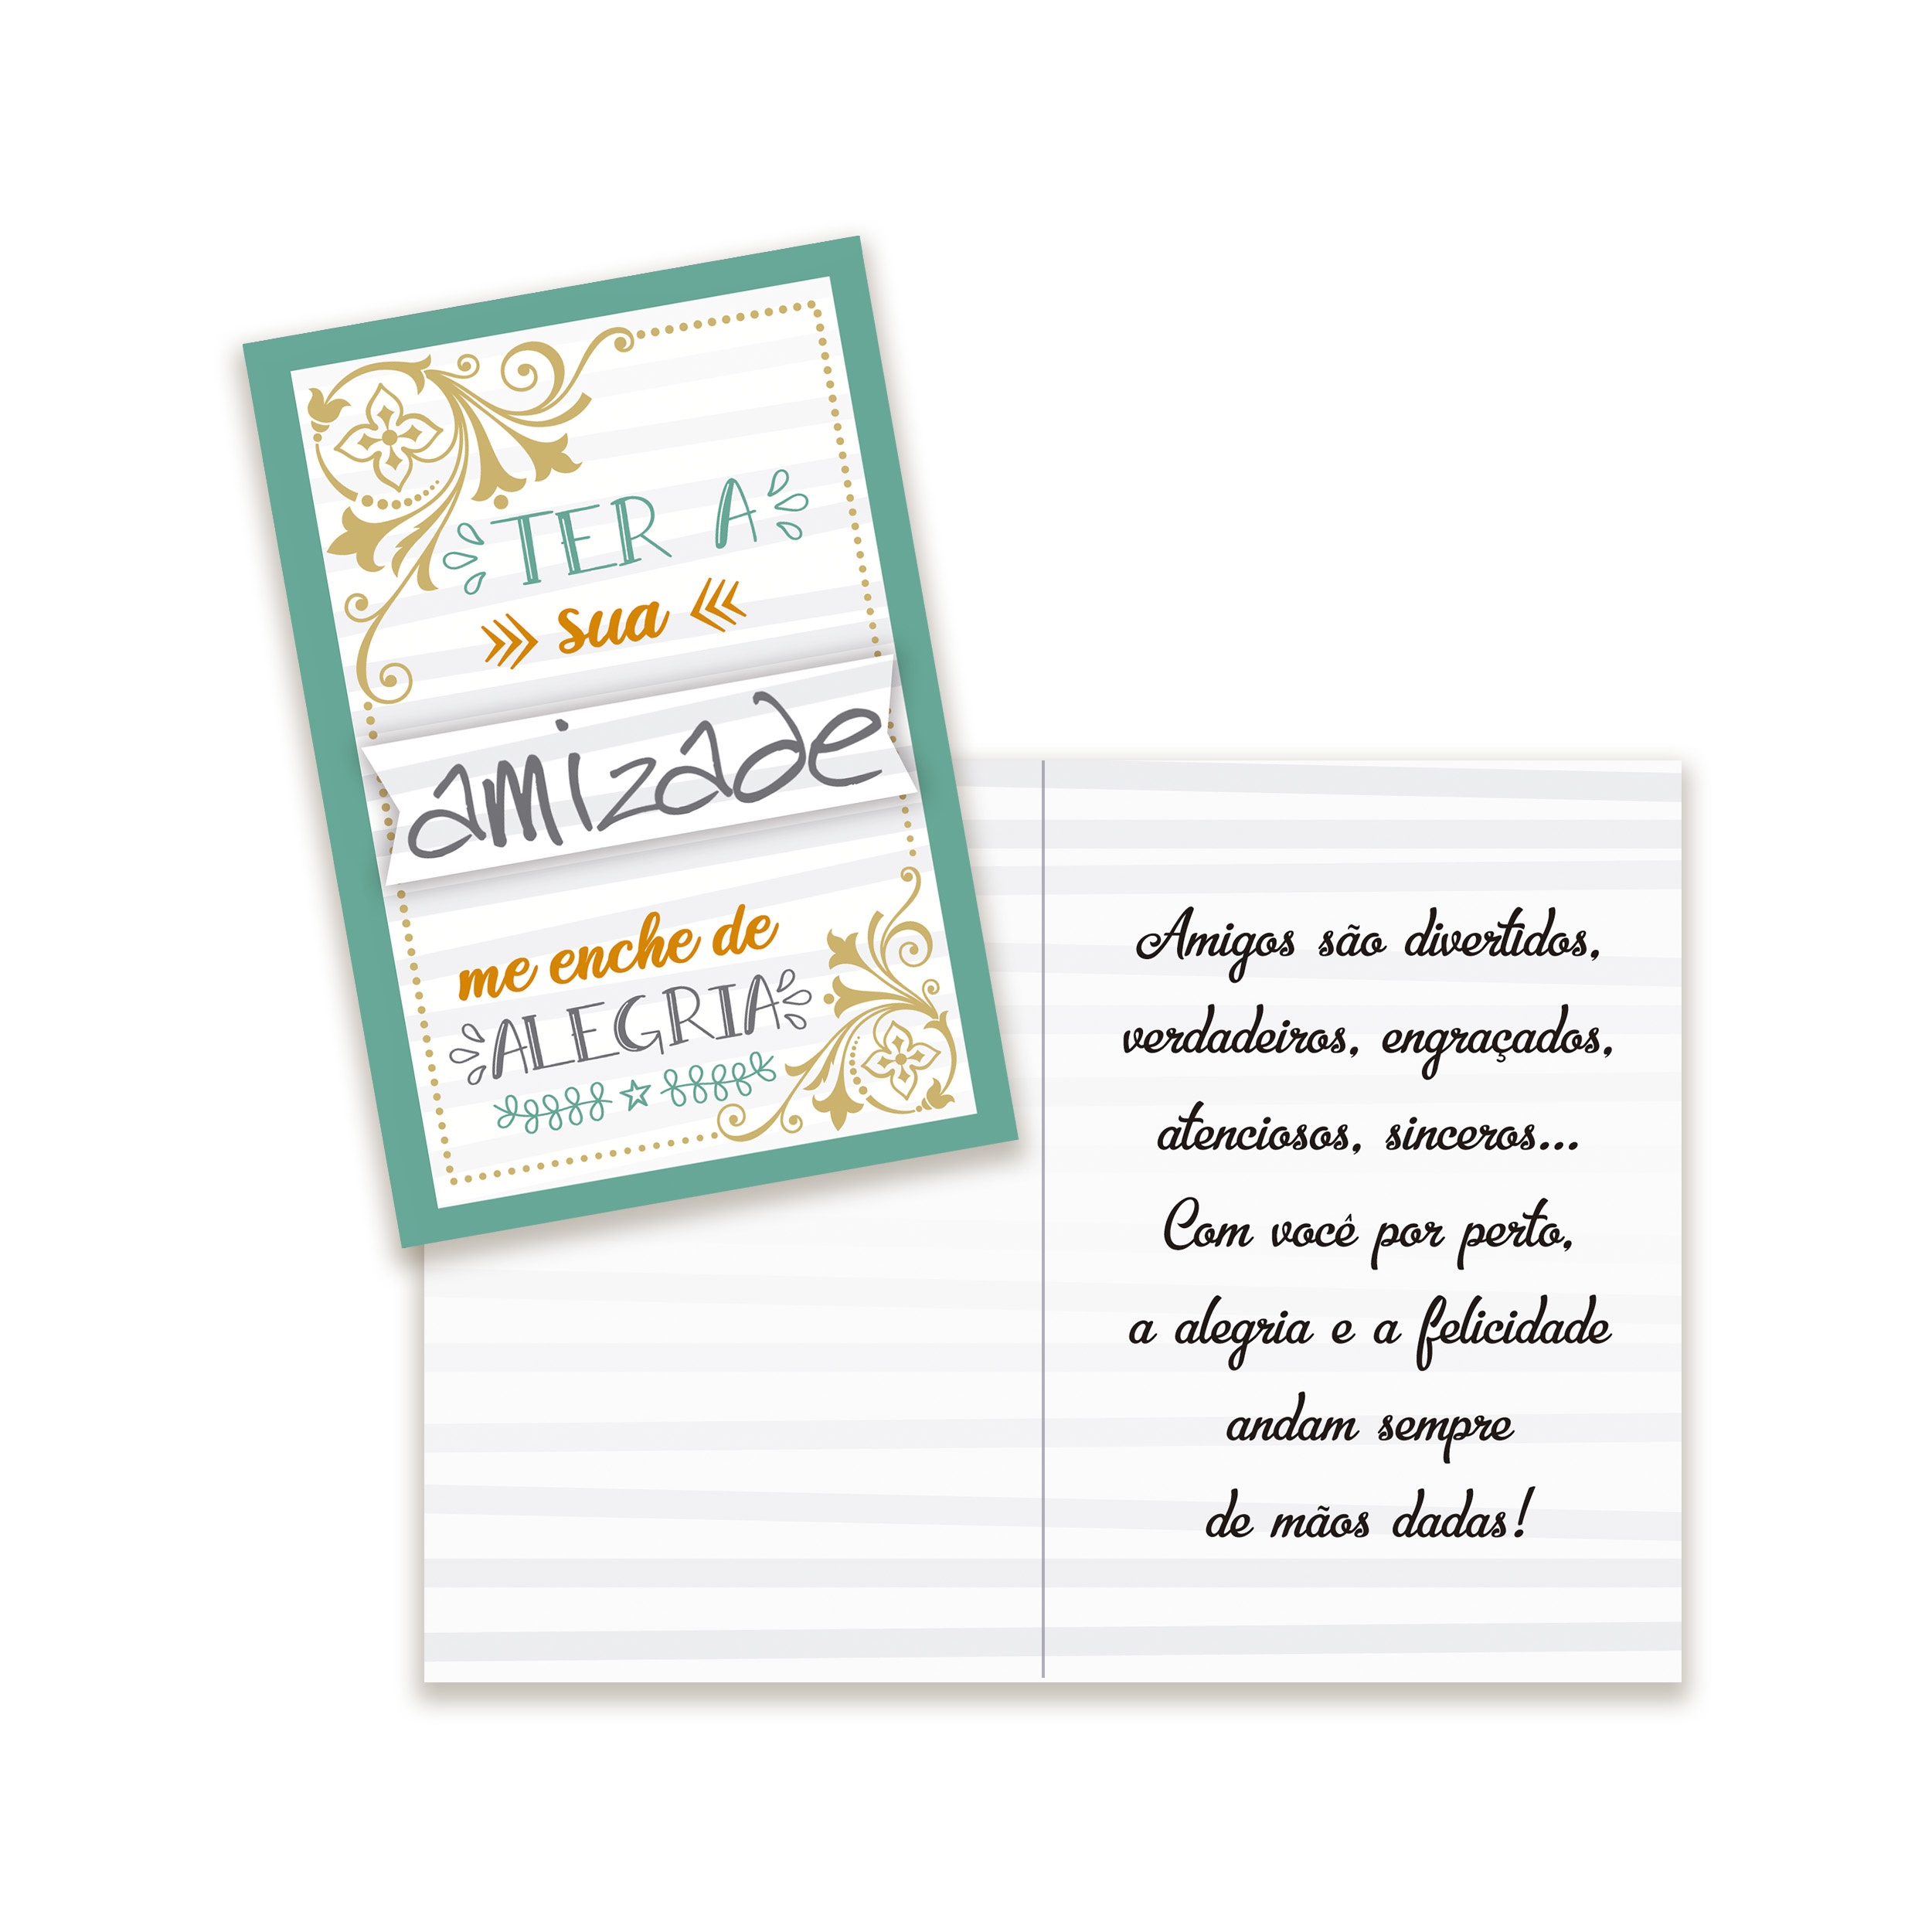 TER A
sua
amizade
me enche de
ALEGRIA
Amigos são divertidos,
verdadeiros, engraçados,
atenciosos, sinceros...
Com você por perto,
a alegria e a felicidade
andam sempre
de mãos dadas!